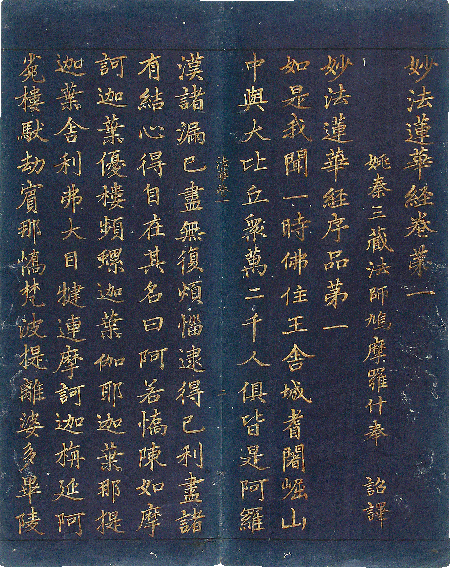 妙法蓮華經卷第一
姚秦三藏法師鳩摩羅什奉　詔譯
妙法蓮華經序品第一
如是我聞一時佛住王舍城耆闍崛山
中與大比丘眾萬二千人俱皆是阿羅
漢諸漏已盡無復煩惱逮得己利盡諸
有結心得自在其名曰阿若憍陳如摩
訶迦葉優樓頻螺迦葉伽耶迦葉那提
迦葉舍利弗大目揵連摩訶迦栴延阿
㝹樓馱劫賓那憍梵波提離婆多畢陵